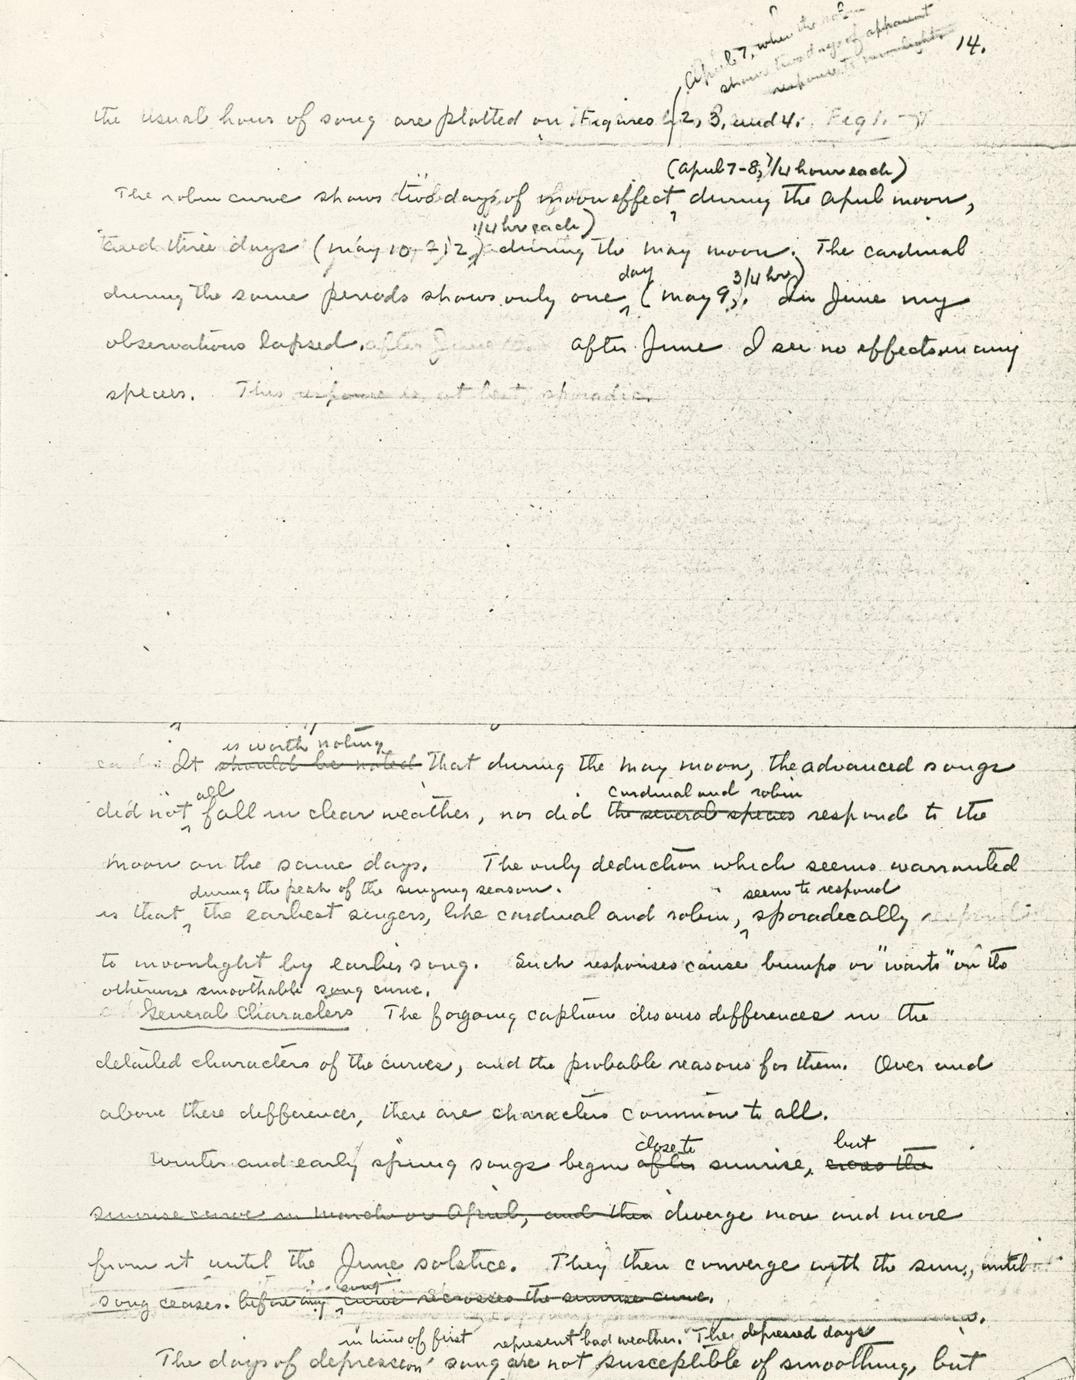 April 7, when the robin
shows two days of apparent
response to moonlight
14.
the usual hour of song are plotted on Figures 2, 3, and 4. Fig 1.
(April 7-8, 1/4 hour each)
The robin curve shows two days of moon effect, during the April moon,
1/4 hr each)
and three days (May 10, 212) during the May moon. The cardinal
day 3/4 hr)
during the same periods shows only one (May 9, . In June my
observations lapsed. after June After June I see no effects in any
species. This response is, at best, sporadic.
is worth noting
It should be noted that during the May moon, the advanced songs
all cardinal and robin
did not fall in clear weather, nor did the several species respond to the
moon on the same days. The only deduction which seems warranted
during the peak of the singing season. seem to respond
is that, the earliest singers, like cardinal and robin, sporadically
to moonlight by earlier song. Such responses cause bumps or "warts" on the
otherwise smoothable song curve.
General Characters The forgoing caption discuss differences in the
detailed characters of the curves, and the probable reasons for them. Over and
above these differences, there are characters common to all.
close to but
Winter and early spring songs begin after sunrise, cross the
sunrise curve in March or April, and then diverge more and more
from it until the June solstice. They then converge with the sun, until
song
song ceases. before any curve recrosses the sunrise curve.
in time of first represent bad weather. The depressed days
The days of depression song are not susceptible of smoothing, but